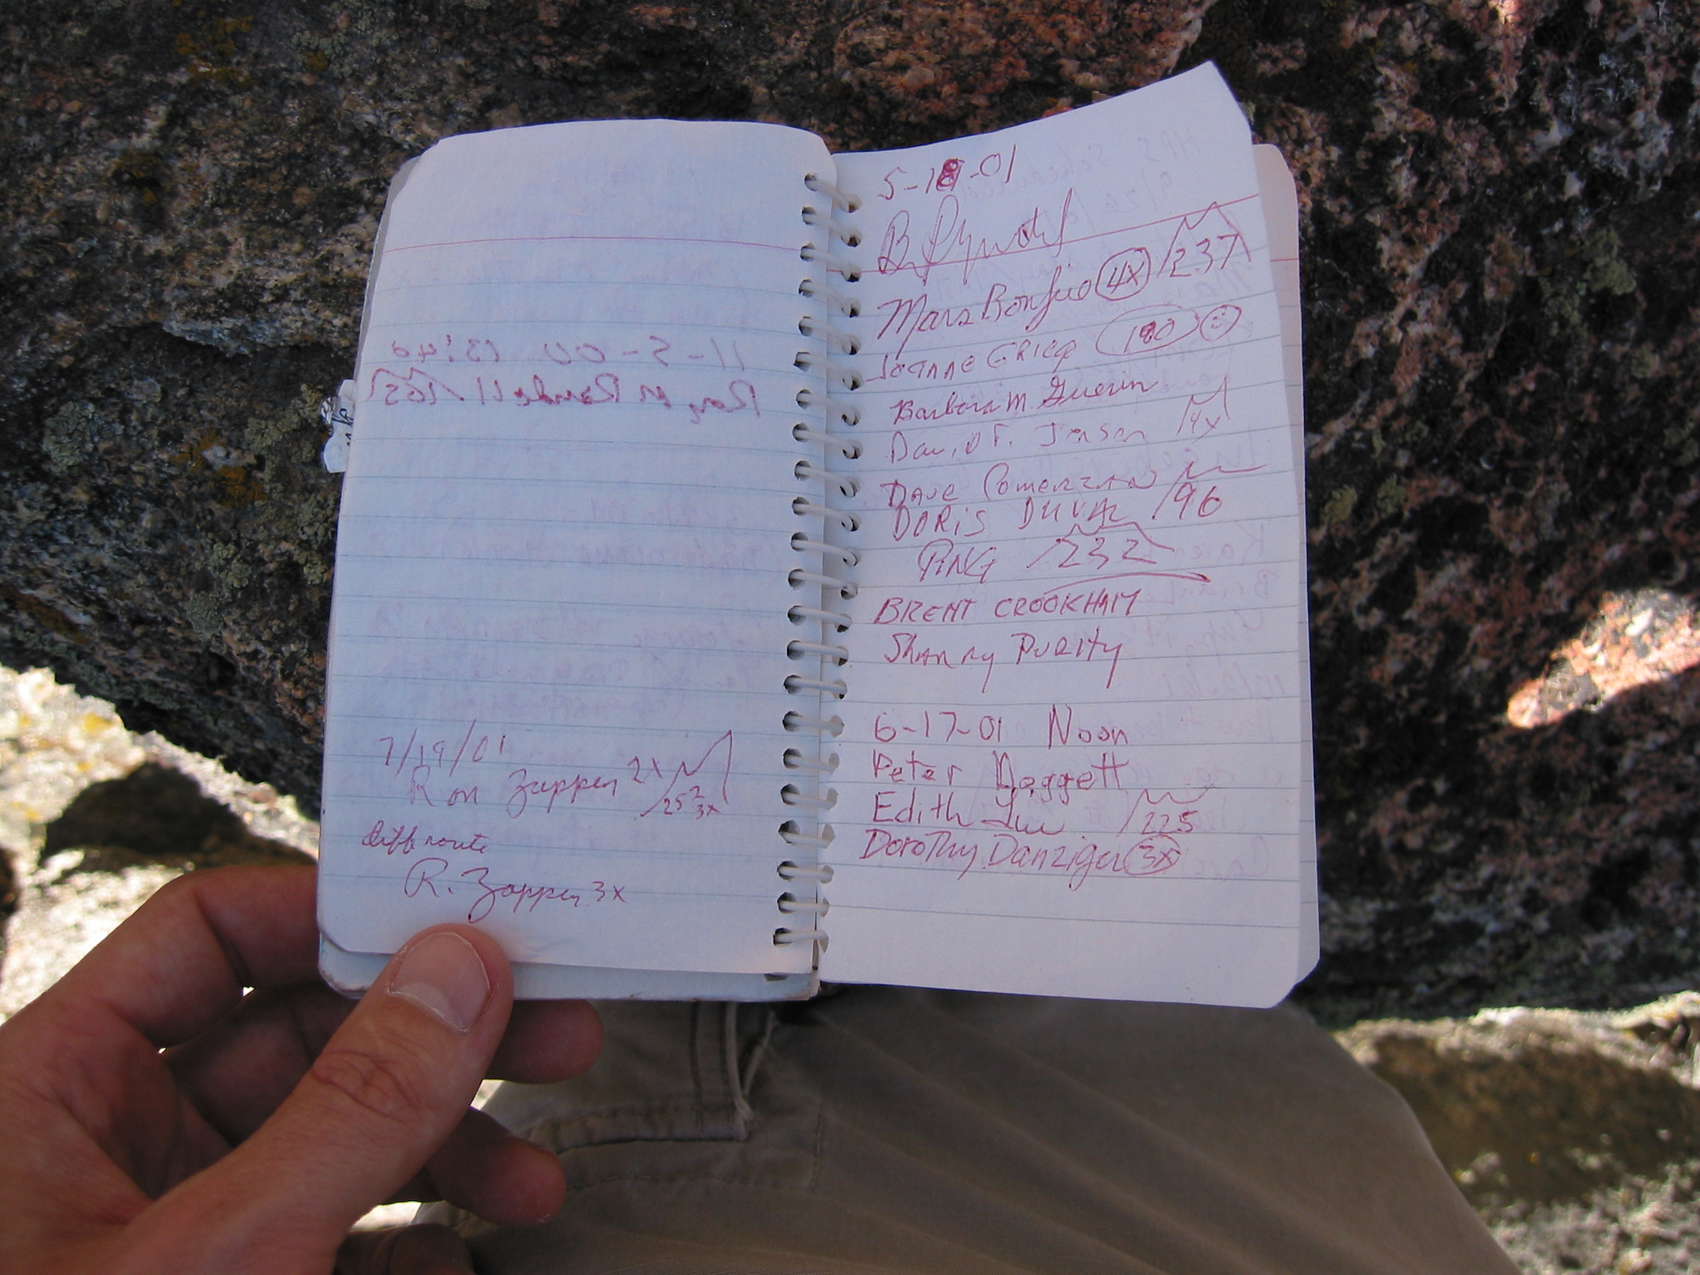 11-5-00 13:40
Roy M Randell /165
7/19/01
Ron Zappen 2x
/252
3x
diff route
R. Zappen 3x
5-18-01
B
Mars Bonfire 4x /237
Joanne Griego 190
Barbara M. Guerin
David F. Jensen 14x
Dave Comerzan
DORIS DUVAL /96
PING /232
BRENT CROOKHAM
Shanny Purity
6-17-01 Noon
Peter Doggett
Edith Liu /225
Dorothy Danziger 3x